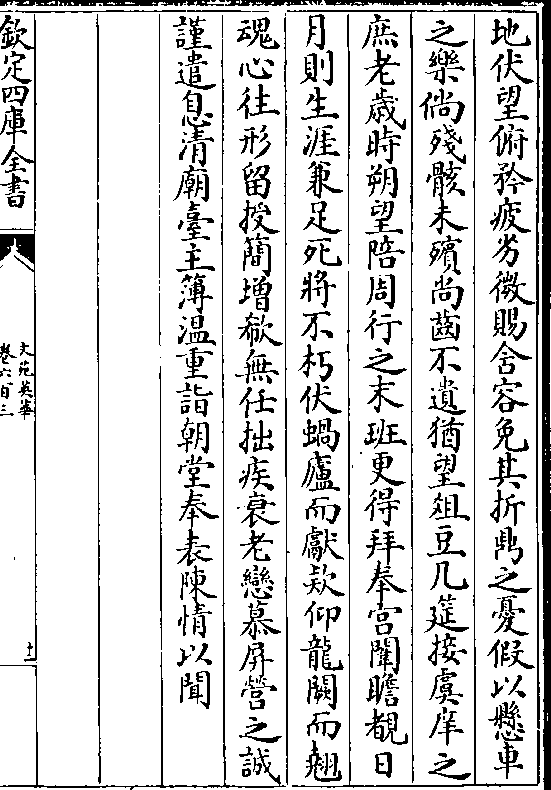 地伏望俯矜疲劣微賜含容免其折鼎之憂假以懸車
之樂倘殘骸未殯尚齒不遺猶望俎豆几筵接虞庠之
庶老歲時朔望陪周行之末班更得拜奉宫闈瞻覩日
月則生涯兼足死將不朽伏蝸廬而獻欵仰龍闕而翹
魂心往形留授簡增欷無任拙疾衰老戀慕屏營之誠
謹遣息清廟臺主簿温重詣朝堂奉表陳情以聞
欽定四庫全書
文苑英華
卷六百三
十一